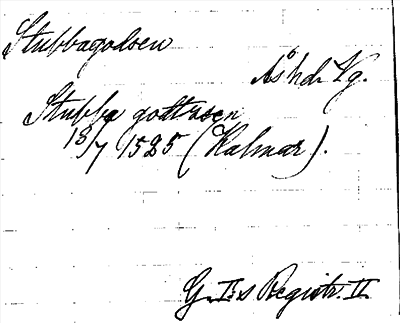 Stubbagodsen
Ås hd. Vg.
Stubba godttzsen
13/7 1525 (Kalmar).
G. I:s Registr. II